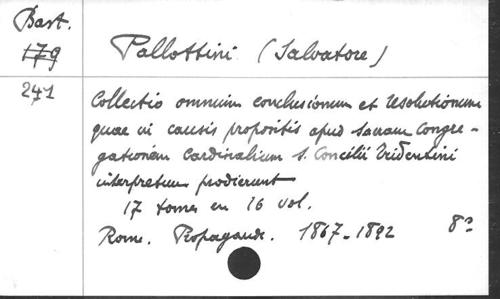 Bast.
179
Pallottini (Salvatore)
241
Collectio omnium conclusionum et resolutionum
quae in causis propositis apud sacram Congre-
gationem Cardinalium S. Concilii Tridentini
interpretum prodierunt
17 tomes en 16 vol.
Rome. Propagande. 1867-1892 8º